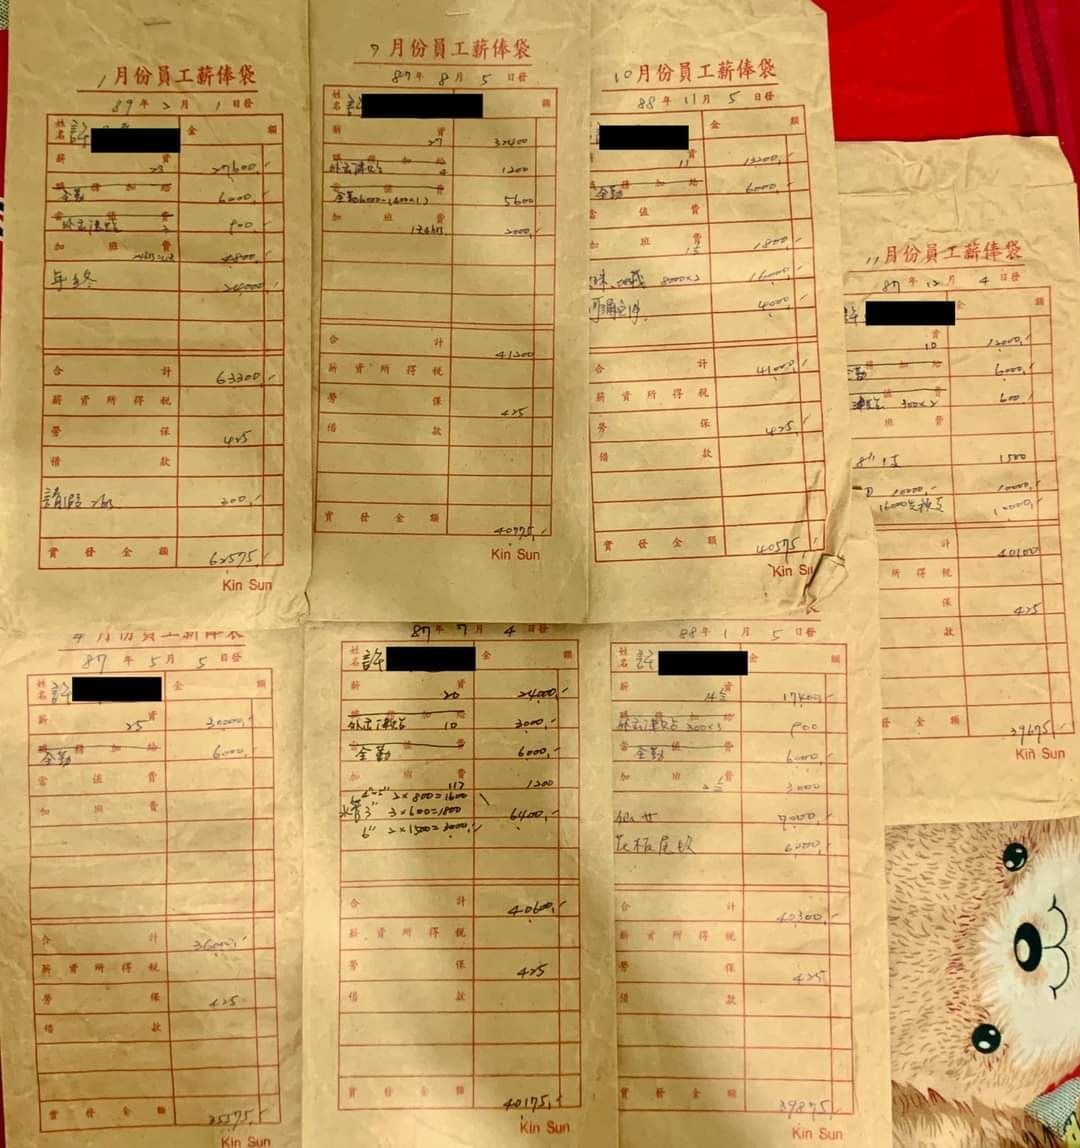 1月份員工薪俸袋
89年2月1日發
姓名 許 金額
薪資 23 27600
職務加給 全勤 6000
當值費 外宿津貼 3 900
加班費 4800
年終 24000
合計 63300
薪資所得稅
勞保 425
借款
請假 200
實發金額 62575
Kin Sun
7月份員工薪俸袋
87年8月5日發
姓名 許 額
薪資 27 32400
1200
5600
加班費 2000
合計 41200
薪資所得稅
勞保 425
借款
實發金額 40775
Kin Sun
10月份員工薪俸袋
88年11月5日發
姓名 金額
薪資 11 13200
職務加給 全勤 6000
當值費
加班費 1800
8000×2 16000
4000
合計 41000
薪資所得稅
勞保 425
借款
實發金額 40575
Kin Su
11月份員工薪俸袋
87年12月4日發
許 金
資 10 12000
全勤 6000
津貼 300×2 600
班費
8" 1支 1500
10000 10000
10000
計 40100
所得稅
保 425
款
發金額 39675
Kin Sun
4月份員工薪俸袋
87年5月5日發
姓名 許 金額
薪資 25 30000
職務加給 全勤 6000
當值費
加班費
合計 36000
薪資所得稅
勞保 425
借款
實發金額 35575
Kin Sun
87年7月4日發
姓名 許 金額
薪資 20 24000
職務加給 10 3000
當值費 全勤 6000
加班費 1200
2×800=1600
水管3" 3×600=1800 6400
6" 2×1500=3000
合計 40600
薪資所得稅
勞保 425
借款
實發金額 40175
Kin Sun
88年1月5日發
姓名 許 金額
薪資 17400
300×3 900
當值費 全勤 6000
加班費 3000
7000
6000
合計 40300
薪資所得稅
勞保 425
借款
實發金額 39875
Kin Sun